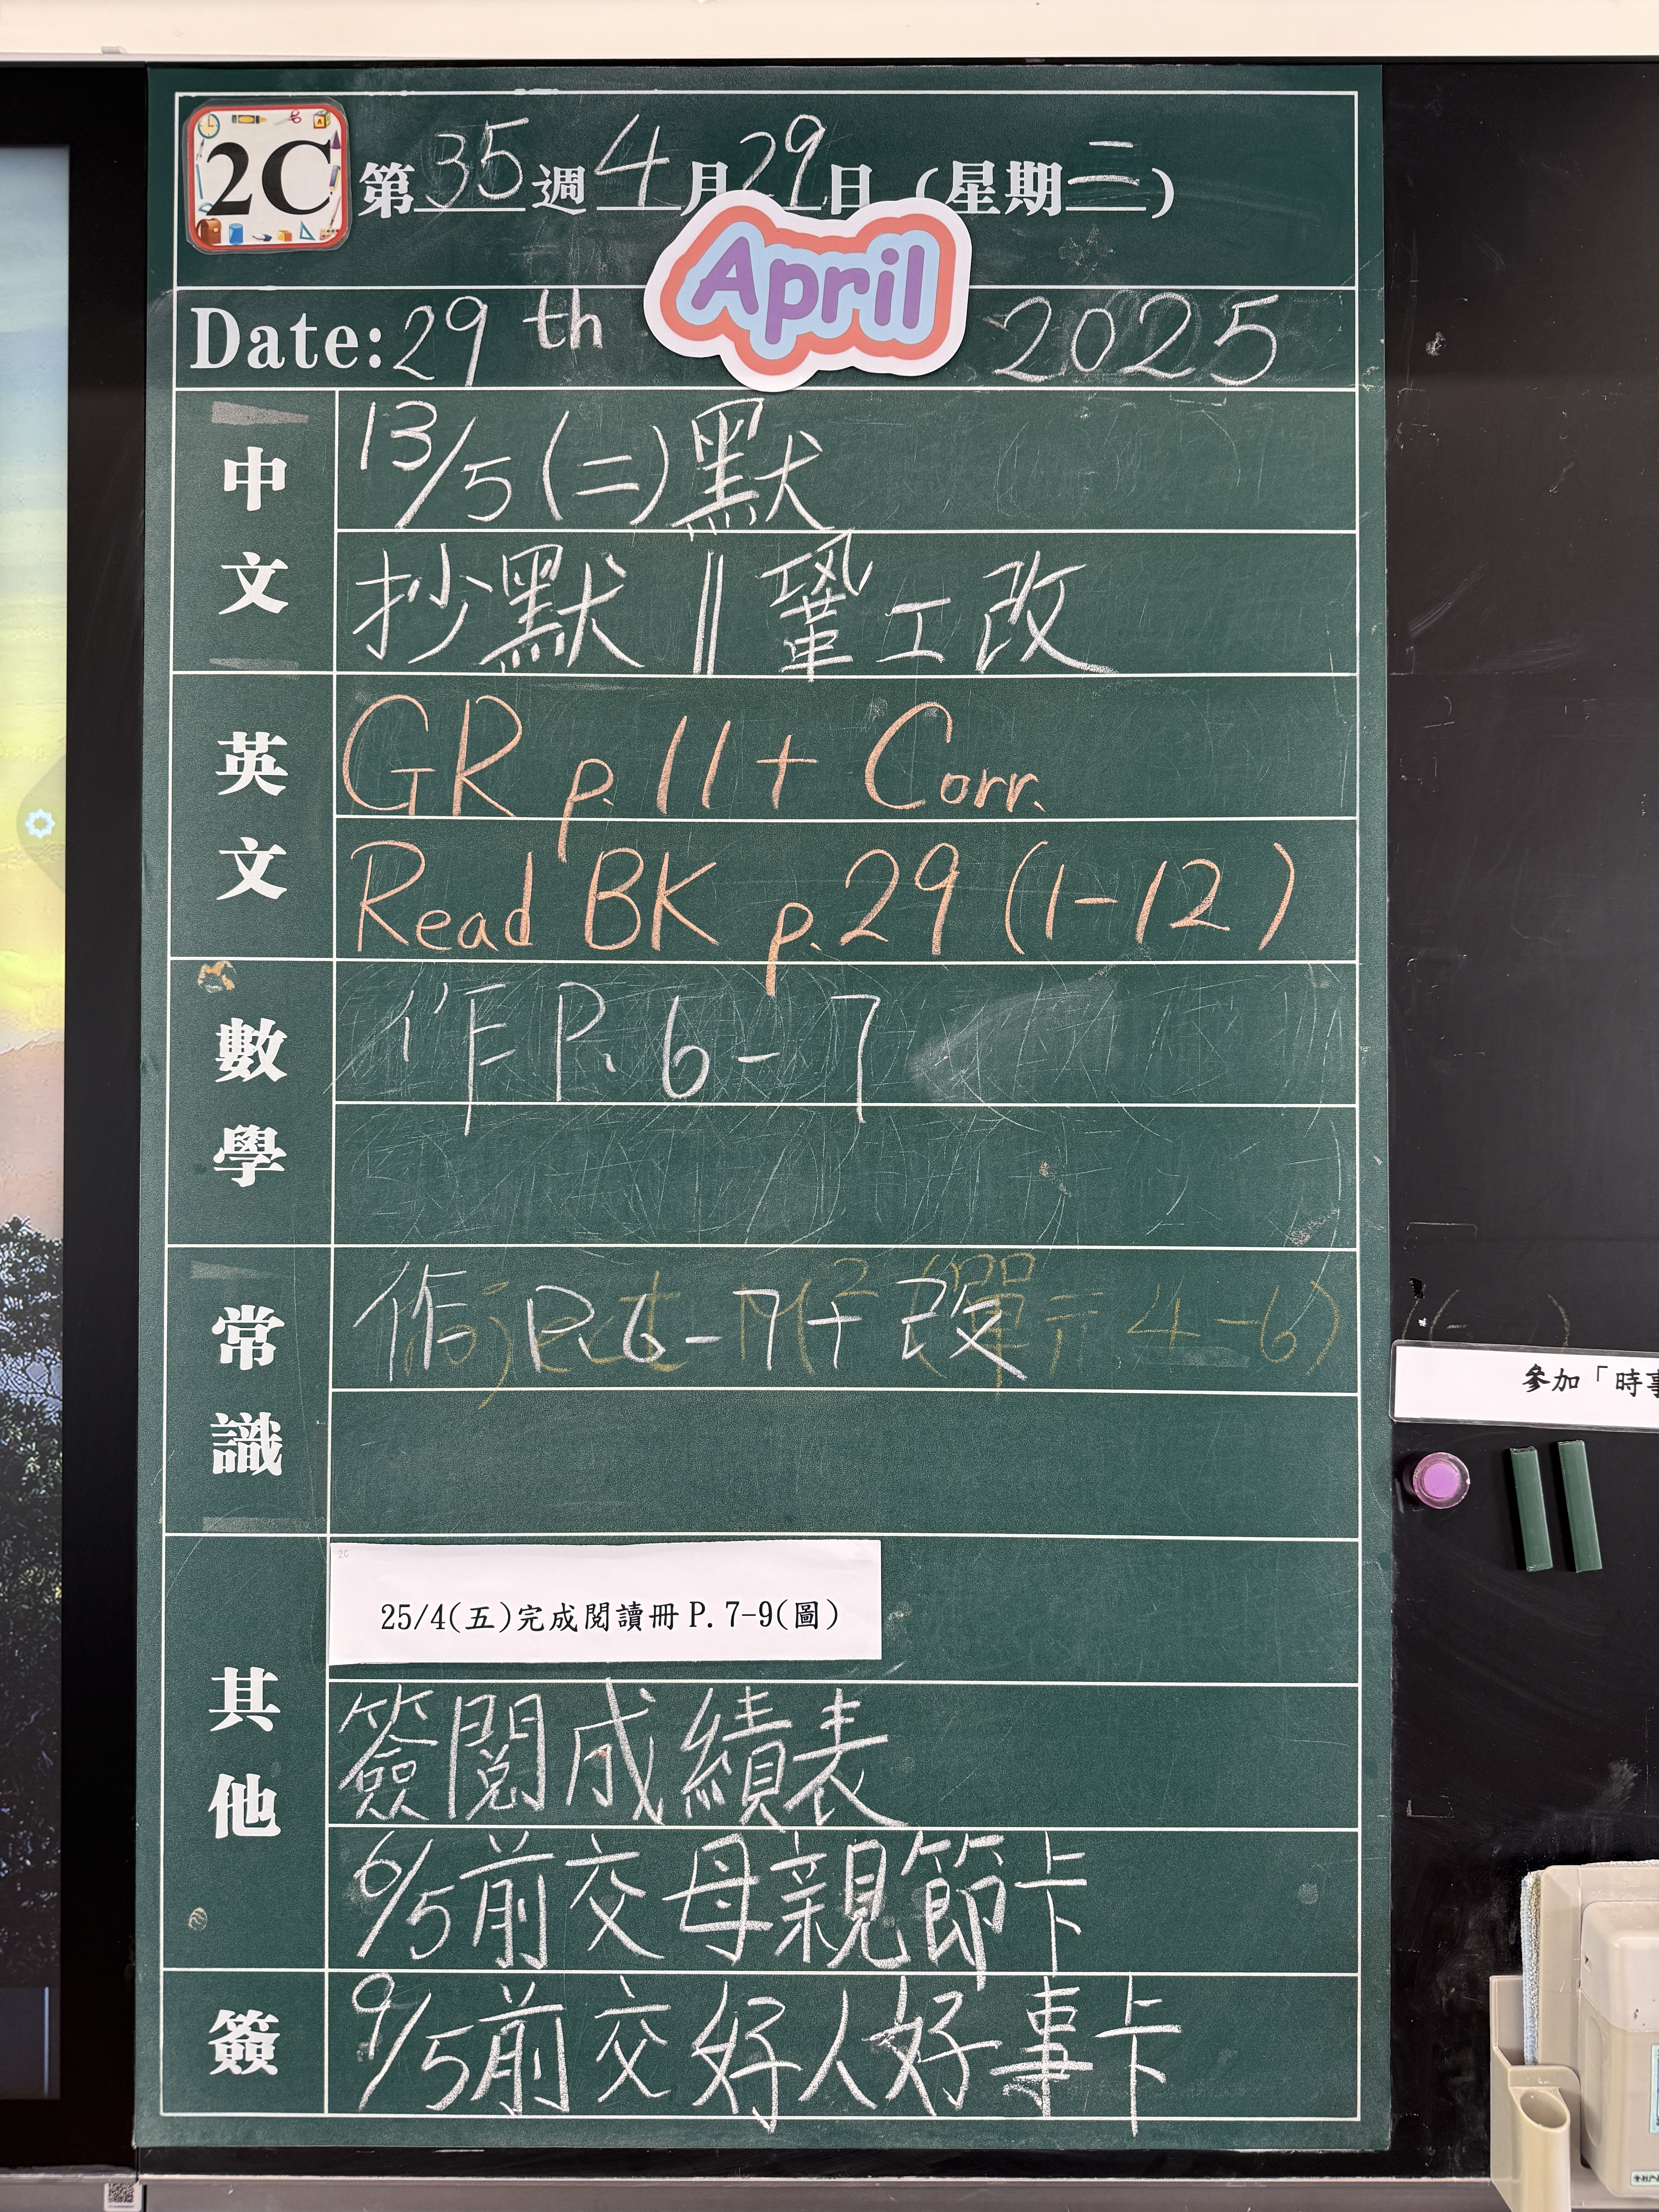 2C 第35週4月29日（星期二）
Date: 29th April 2025
中文
13/5(二)默
抄默 || 鞏工改
英文
GR p.11 + Corr.
Read BK p.29 (1-12)
數學
作 P. 6-7
常識
作 P. 6-7+改
其他
2C
25/4(五)完成閱讀冊P.7-9(圖)
簽閱成績表
6/5前交母親節卡
簽
9/5前交好人好事卡
參加「時事